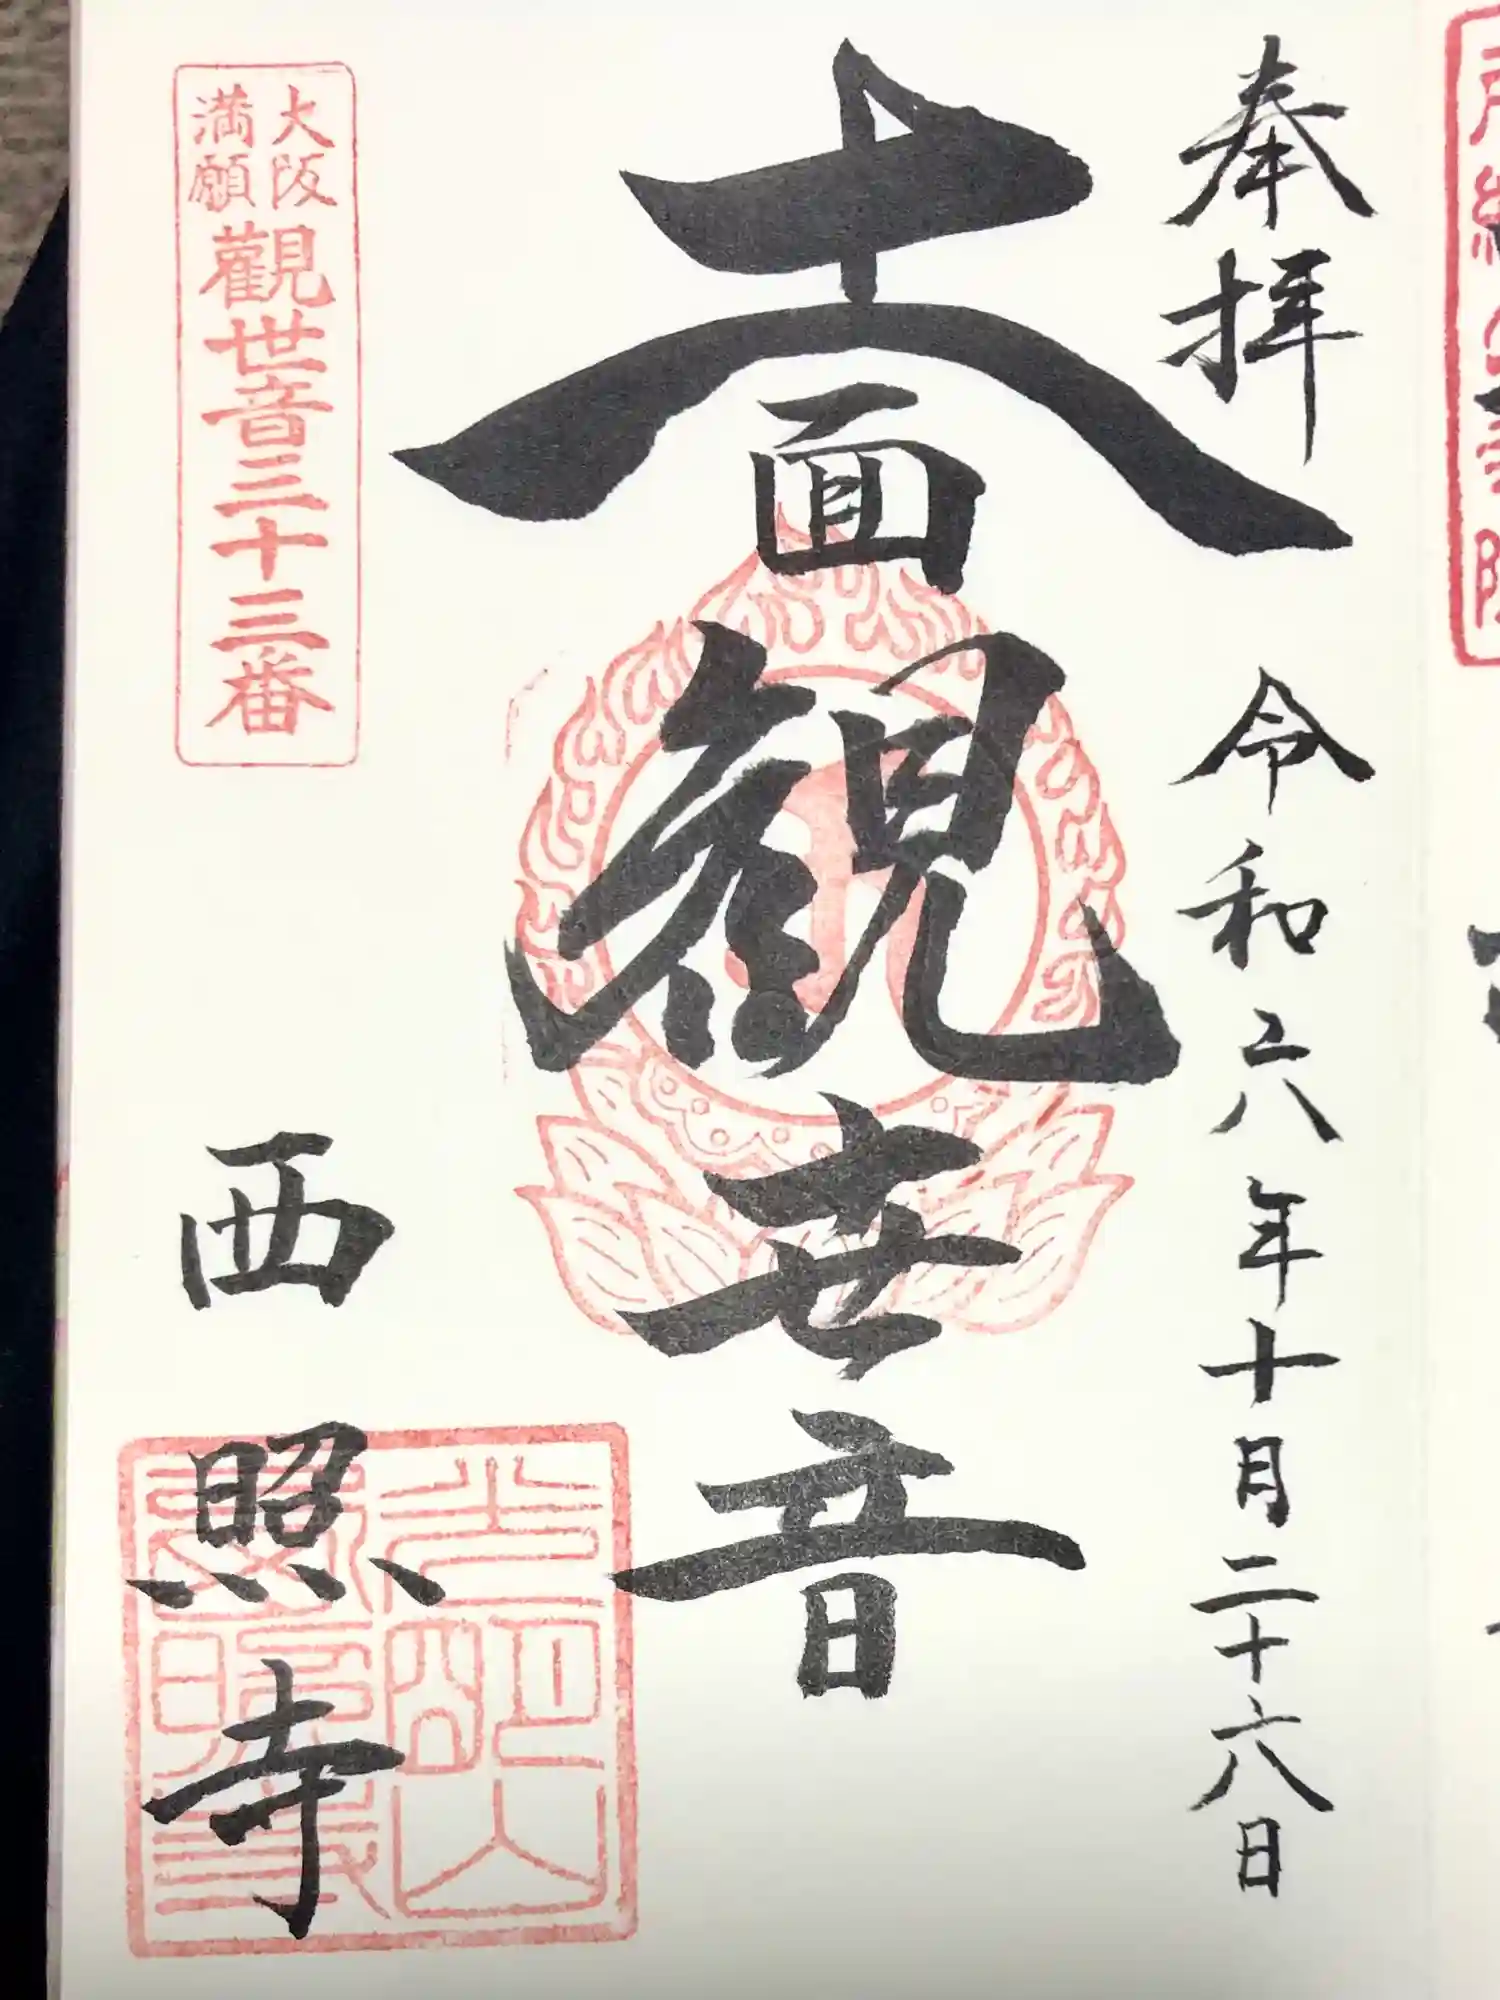 奉拝 令和六年十月二十六日
十一面観世音
大阪
満願
觀世音三十三番
西照寺